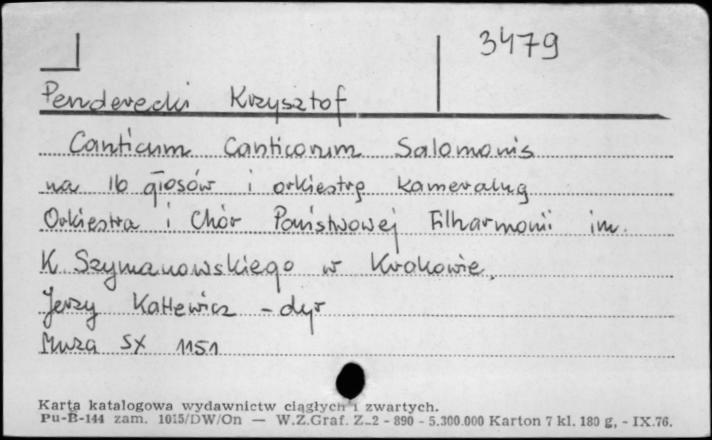 3479
Penderecki Krzysztof
Canticum Canticorum Salomonis
na 16 głosów i orkiestrę kameralną
Orkiestra i Chór Państwowej Filharmonii im.
K. Szymanowskiego w Krakowie.
Jerzy Katlewicz - dyr
Muza SX 1151
Karta katalogowa wydawnictw ciągłych i zwartych.
Pu-B-144 zam. 1015/DW/On — W.Z.Graf. Z-2 - 890 - 5.300.000 Karton 7 kl. 180 g, - IX.76.